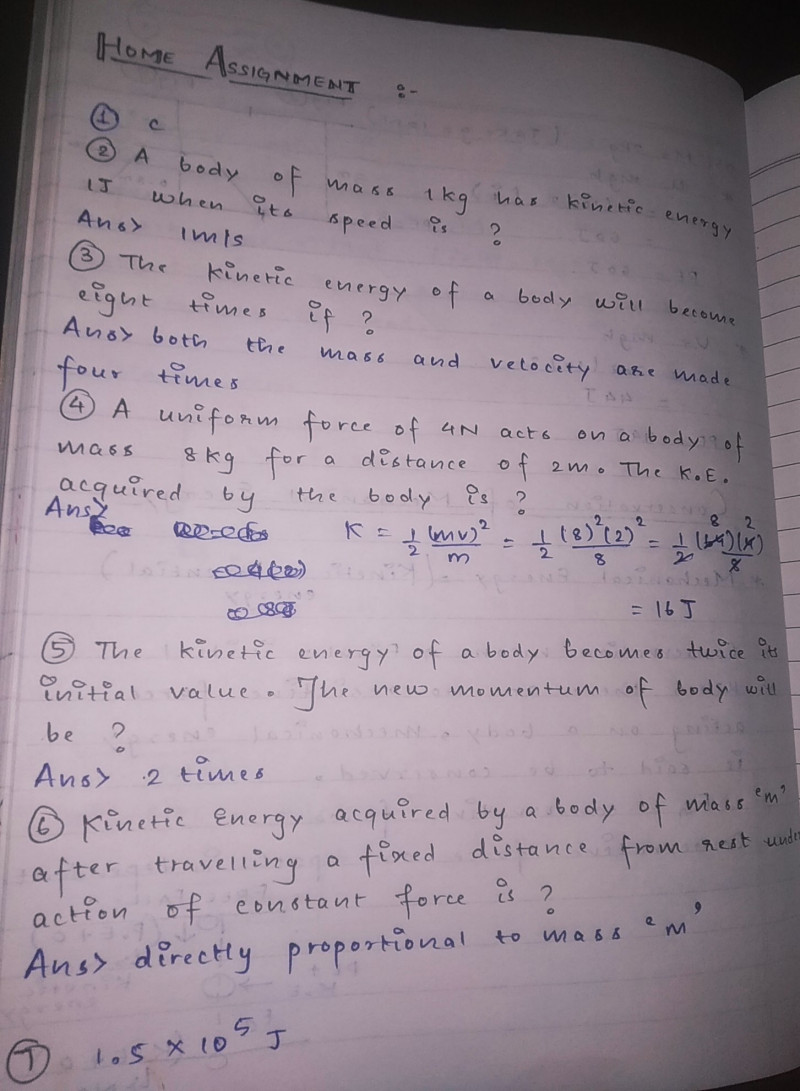 HOME ASSIGNMENT :-
① c
② A body of mass 1kg has kinetic energy
1J when its speed is ?
Ans> 1m/s
③ The kinetic energy of a body will become
eight times if ?
Ans> both the mass and velocity are made
four times
④ A uniform force of 4N acts on a body of
mass 8kg for a distance of 2m. The K.E.
acquired by the body is ?
Ans>
K = 1/2 (mv)²/m = 1/2 (8)²(2)²/8 = 1/2 (64)(4)/8 8 2
= 16 J
⑤ The kinetic energy of a body becomes twice its
initial value. The new momentum of body will
be ?
Ans> 2 times
⑥ Kinetic Energy acquired by a body of mass 'm'
after travelling a fixed distance from rest under
action of constant force is ?
Ans> directly proportional to mass 'm'
⑦ 1.5 × 10⁵ J